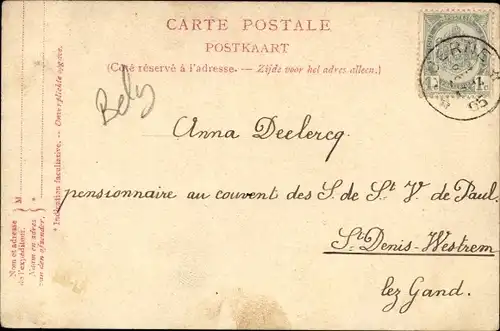 CARTE POSTALE
POSTKAART
(Côté réservé à l'adresse. — Zijde voor het adres alleen.)
Bely
Anna Declercq
pensionnaire au couvent des S. de St V. de Paul.
St Denis-Westrem
lez Gand.
Nom et adresse de l'expéditeur.
Naam en adres van den afzender.
M
* Indication facultative. — Onverplichte opgave.
05